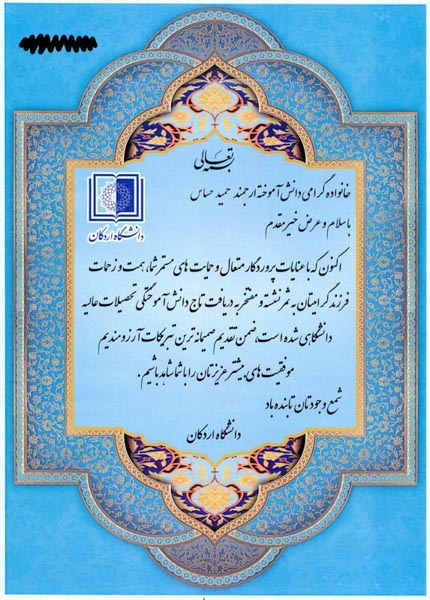 بسمه تعالی
خانواده گرامی دانش آموخته ارجمند حمید حساس
با سلام و عرض خیر مقدم
دانشگاه اردکان
اکنون که با عنایات پروردگار متعال و حمایت های مستمر شما، همت و زحمات
فرزند گرامیتان به ثمر نشسته و مفتخر به دریافت تاج دانش آموختگی تحصیلات عالیه
دانشگاهی شده است، ضمن تقدیم صمیمانه ترین تبریکات آرزومندیم
موفقیت های بیشتر عزیزتان را با شما شاهد باشیم.
شمع وجودتان تابنده باد
دانشگاه اردکان